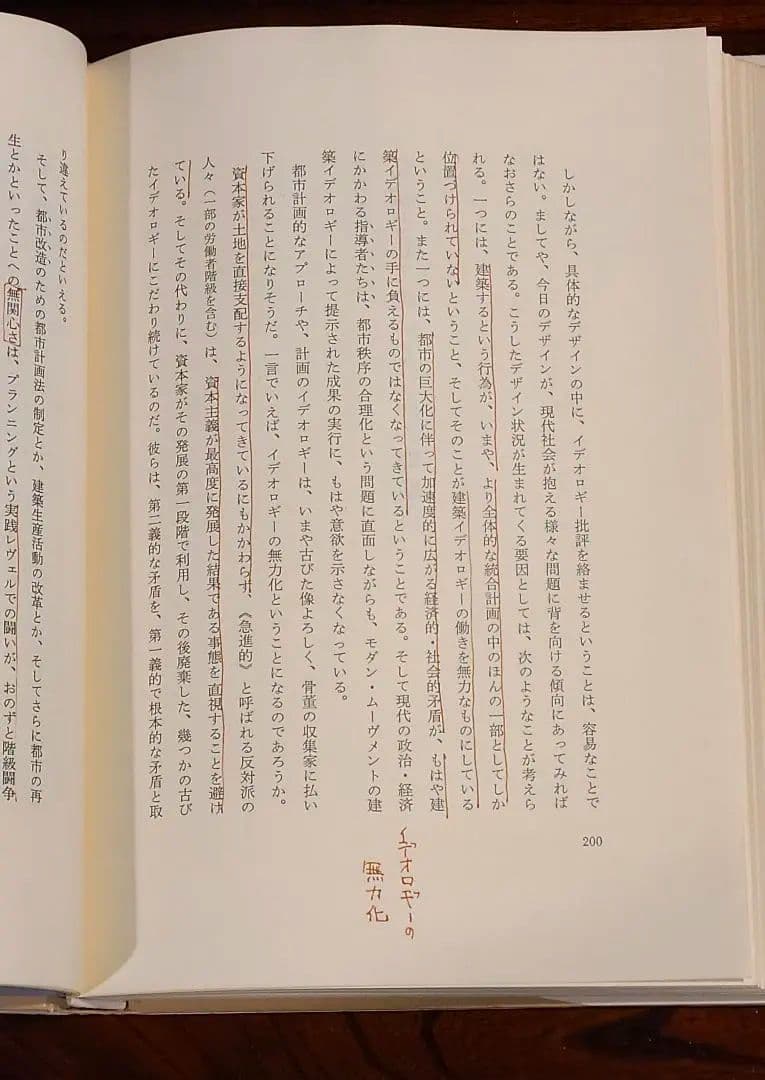 しかしながら、具体的なデザインの中に、イデオロギー批評を絡ませるということは、容易なことで
はない。ましてや、今日のデザインが、現代社会が抱える様々な問題に背を向ける傾向にあってみれば
なおさらのことである。こうしたデザイン状況が生まれてくる要因としては、次のようなことが考えら
れる。一つには、建築するという行為が、いまや、より全体的な統合計画の中のほんの一部としてしか
位置づけられていないということ、そしてそのことが建築イデオロギーの働きを無力なものにしている
ということ。また一つには、都市の巨大化に伴って加速度的に広がる経済的・社会的矛盾が、もはや建
築イデオロギーの手に負えるものではなくなってきているということである。そして現代の政治・経済
にかかわる指導者たちは、都市秩序の合理化という問題に直面しながらも、モダン・ムーヴメントの建
築イデオロギーによって提示された成果の実行に、もはや意欲を示さなくなっている。
都市計画的なアプローチや、計画のイデオロギーは、いまや古びた像よろしく、骨董の収集家に払い
下げられることになりそうだ。一言でいえば、イデオロギーの無力化ということになるのであろうか。
資本家が土地を直接支配するようになってきているにもかかわらず、《急進的》と呼ばれる反対派の
人々（一部の労働者階級を含む）は、資本主義が最高度に発展した結果である事態を直視することを避け
ている。そしてその代わりに、資本家がその発展の第一段階で利用し、その後廃棄した、幾つかの古び
たイデオロギーにこだわり続けているのだ。彼らは、第二義的な矛盾を、第一義的で根本的な矛盾と取
200
イデオロギーの
無力化
り違えているのだといえる。
そして、都市改造のための都市計画法の制定とか、建築生産活動の改革とか、そしてさらに都市の再
生とかといったことへの無関心さは、プランニングという実践レヴェルでの闘いが、おのずと階級闘争